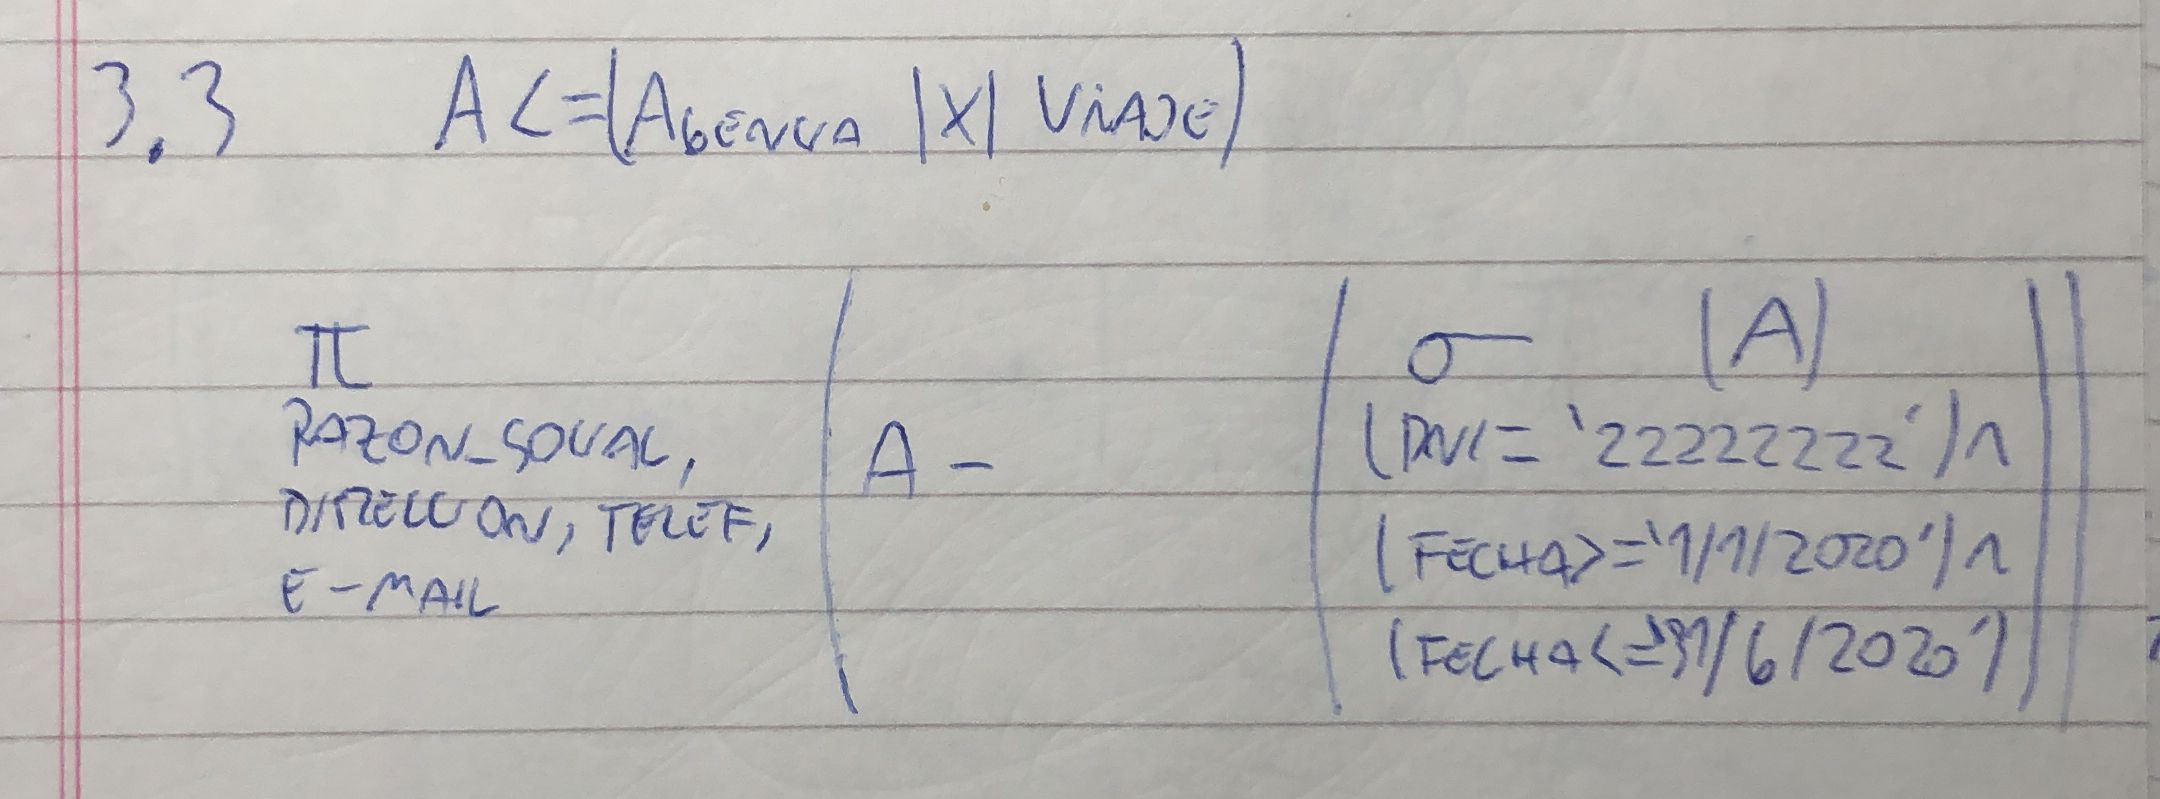 3.3 A <= (AGENCIA |X| VIAJE)
π ( A - ( σ (A)
RAZON_SOCIAL,
DIRECCION, TELEF,
E-MAIL
(DNI = '22222222') ∧
(FECHA >= '1/1/2020') ∧
(FECHA <= '31/6/2020') ))